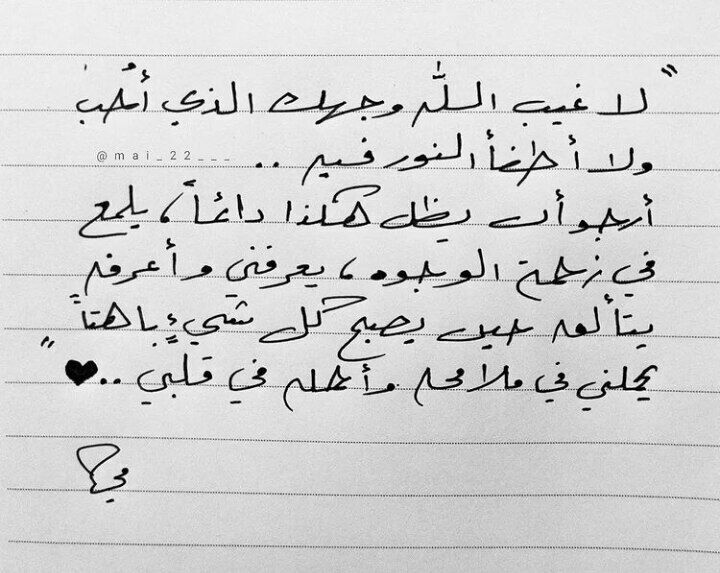 "لا غيب الله وجهك الذي أُحب
ولا أطفأ النور فيه ..
@mai_22___
أرجو أن يظل هكذا دائماً، يلمع
في زحمة الوجوه، يعرفني وأعرفه
يتألق حين يصبح كل شيءٍ باهتاً
يحملني في ملامحه وأحمله في قلبي ..♥"
مي